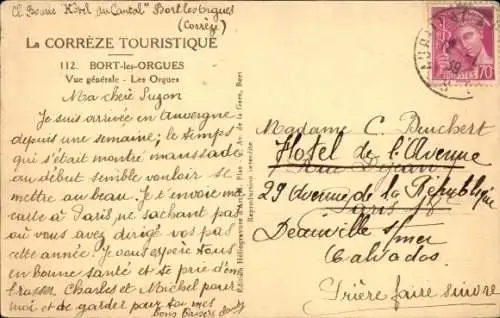 Cl. Bouric "Hôtel du Cantal" Bort les Orgues
(Corrèze)
La CORRÈZE TOURISTIQUE
112. BORT-les-ORGUES
Vue générale - Les Orgues
Ma chère Suzon
Je suis arrivée en Auvergne
depuis une semaine ; le temps
qui s'était montré maussade
au début semble vouloir se
mettre au beau. Je t'envoie ma
carte à Paris, ne sachant pas
où vous avez dirigé vos pas
cette année. Je vous espère tous
en bonne santé et te prie d'em
brasser Charles et Michel pour
moi et de garder pour toi mes
bons baisers
Av. de la Gare, Bort
Reproduction interdite
Madame C. Buichert
Hotel de l'Avenue
29 Avenue de la République
Paris
Deauville s/mer
Calvados
Prière faire suivre
70